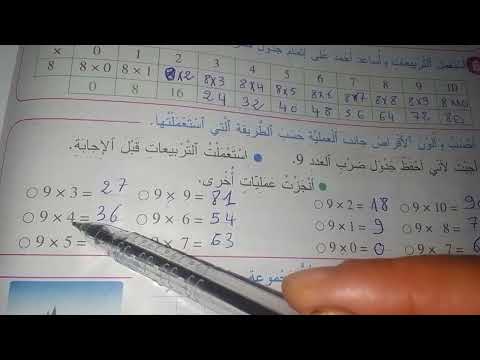 أستعمل التربيعات وأساعد أحمد على إتمام جدول
× 0 1 2 3 4 5 6 7 8 9 10
8 8×0 8×1 8×2 8×3 8×4 8×5 8×6 8×7 8×8 8×9 8×10
0 8 16 24 32 40 48 56 64 78 80
أحسب وألون الأقراص جانب العملية حسب الطريقة التي استعملتها.
أجبت لأني أحفظ جدول ضرب العدد 9. • استعملت التربيعات قبل الإجابة.
• أنجزت عمليات أخرى.
9 × 3 = 27 9 × 9 = 81 9 × 2 = 18 9 × 10 = 9
9 × 4 = 36 9 × 6 = 54 9 × 1 = 9 9 × 8 = 7
9 × 5 = 9 × 7 = 63 9 × 0 = 0 9 × 7 = 6